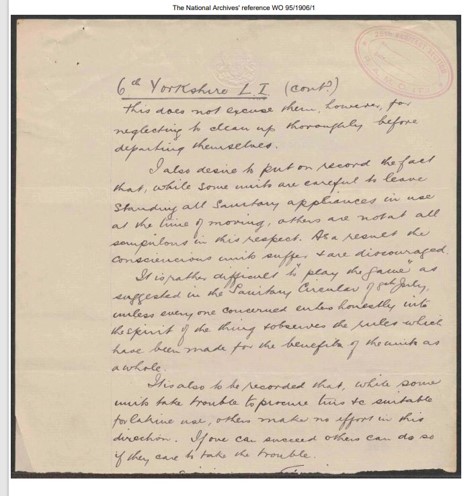 The National Archives' reference WO 95/1906/1
6th Yorkshire L.I. (cont?)
This does not excuse them, however, for
neglecting to clean up thoroughly before
departing themselves.
I also desire to put on record the fact
that, while some units are careful to leave
standing all Sanitary appliances in use
at the time of moving, others are not at all
scrupulous in this respect. As a result the
conscientious units suffer & are discouraged.
It is rather difficult to "play the game" as
suggested in the Sanitary Circular of 8th July,
unless every one concerned enters honestly into
the spirit of the thing & observes the rules which
have been made for the benefits of the units as
a whole.
It is also to be recorded that, while some
units take trouble to procure tins &c suitable
for latrine use, others make no effort in this
direction. If one can succeed others can do so
if they care to take the trouble.